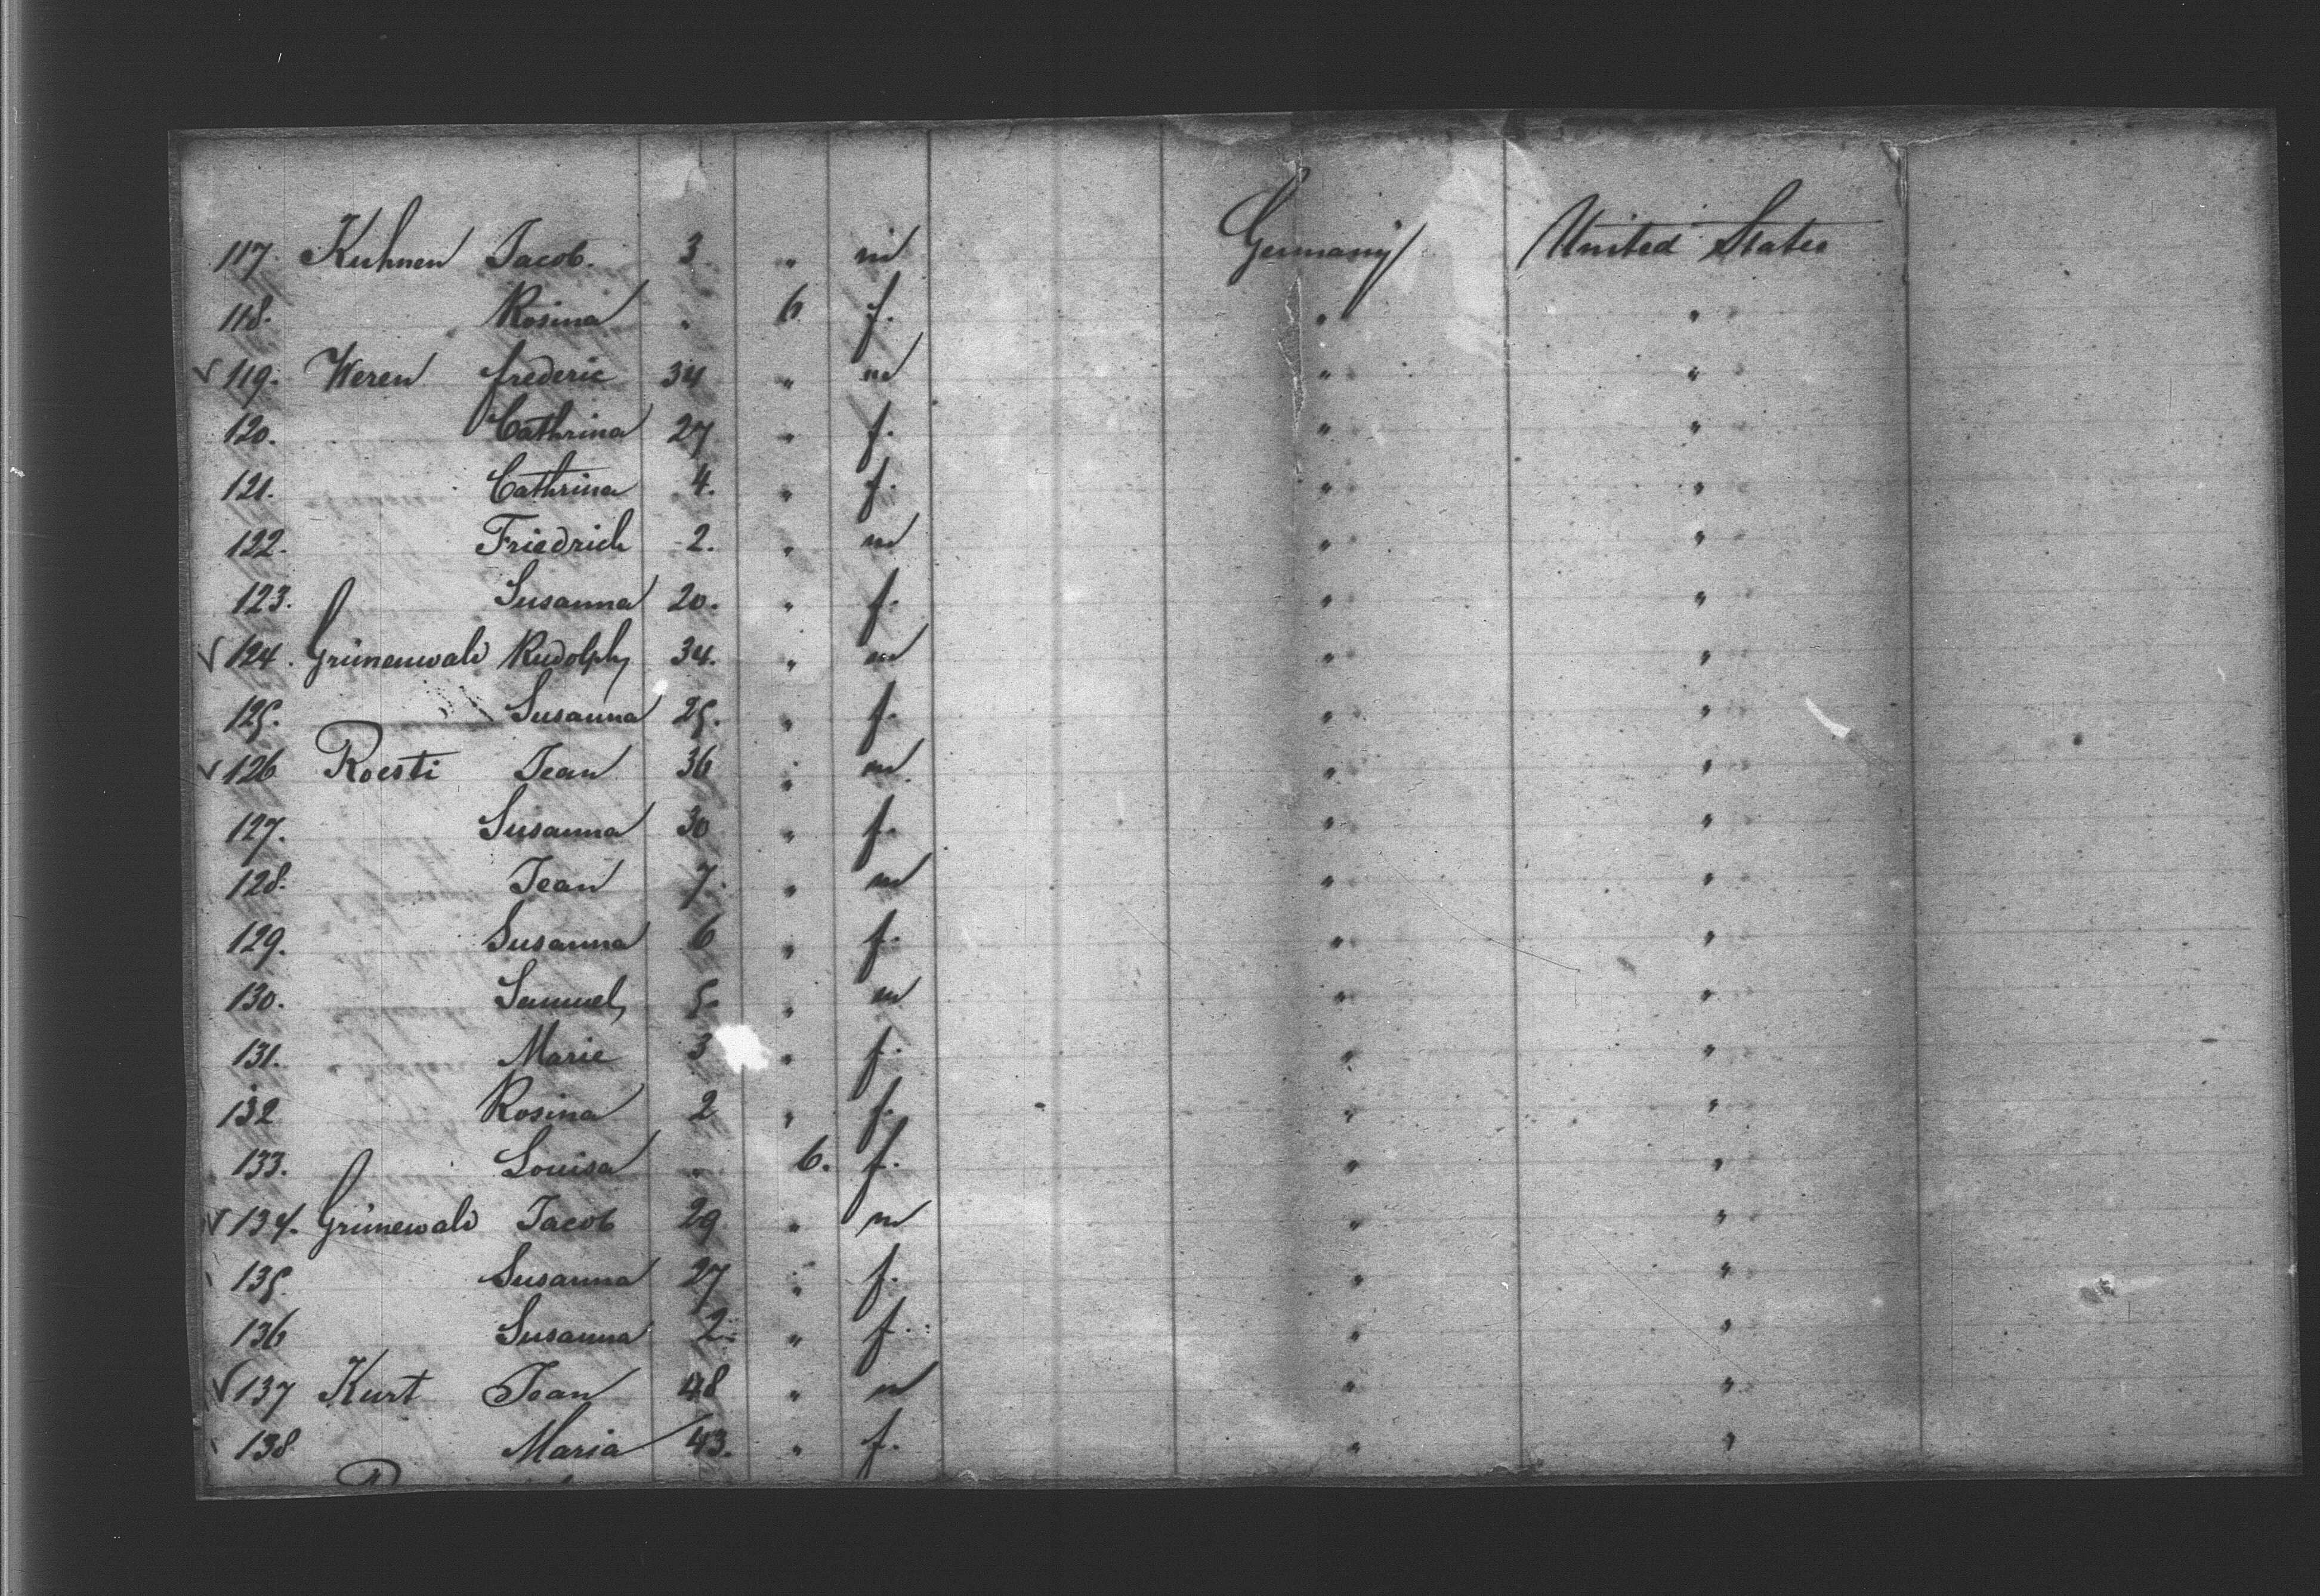 117. Kuhnen Jacob. 3. " m Germany United States
118. Rosina " 6 f. " "
119. Weren frederic 34 " m " "
120. Cathrina 27 " f. " "
121. Cathrina 4. " f. " "
122. Friedrich 2. " m " "
123. Susanna 20. " f. " "
124. Grünenwald Rudolph 34. " m " "
125. Susanna 25. " f. " "
126 Roesti Jean 36 " m. " "
127. Susanna 30 " f. " "
128. Jean 7. " m " "
129. Susanna 6 " f. " "
130. Samuel 5. " m " "
131. Marie 3 " f. " "
132 Rosina 2 " f. " "
133. Louisa " 6. f. " "
134. Grünewald Jacob 29 " m " "
135. Susanna 27 " f. " "
136 Susanna 2. " f. " "
137 Kurt Jean 48 " m " "
138 Maria 43. " f. " "